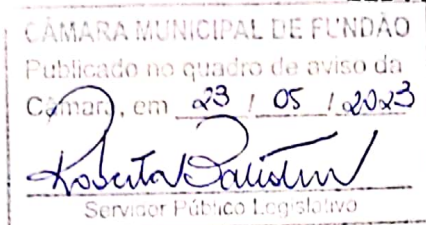 CÂMARA MUNICIPAL DE FUNDÃO
Publicado no quadro de aviso da
Câmara, em 23 / 05 / 2023
Roberta
Servidor Público Legislativo